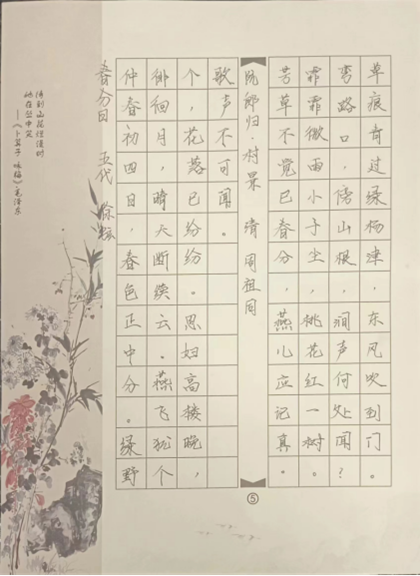 待到山花烂漫时
她在丛中笑
——《卜算子·咏梅》毛泽东
春分日 五代 徐铉
仲春初四日，春色正中分。绿野
徘徊月，晴天断续云。燕飞犹个
个，花落已纷纷。思妇高楼晚，
歌声不可闻。
阮郎归·村景 清 周祖同
芳草不觉已春分，燕儿应记真。
霏霏微雨小于尘，桃花红一树。
弯路口，傍山根，涧声何处闻？
草痕青过绿杨津，东风吹到门。
⑤